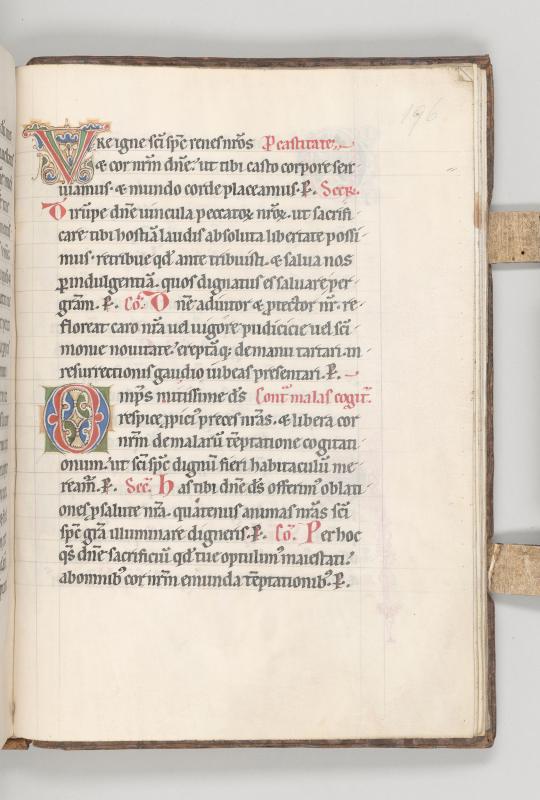 196
VRe igne sc̄i sp̄c renes nr̄os P castitate
& cor nr̄m dn̄e. ut tibi casto corpore ser
uiamus. & mundo corde placeamus. P. Secr̄.
Dirūpe dn̄e uincula peccatoꝝ nr̄oꝝ. ut sacrifi
care tibi hostiā laudis absoluta libertate possi
mus. retribue qd̄ ante tribuisti. & salua nos
ꝑ indulgentiā. quos dignatus es saluare per
gr̄am. P. Cō. Dn̄e adiutor & ꝓtector nr̄. re
floreat caro nr̄a uel uigore pudicicie uel sc̄i
monie nouitate. ereptāq; de manu tartari. in
resurrectionis gaudio iubeas presentari. P.
Omp̄s mitissime ds̄ Cont̄ malas cogit̄.
respice ꝓpici᾽ preces nr̄as. & libera cor
nr̄m de malarū tēptatione cogitati
onum. ut sc̄i sp̄c dignū fieri habitaculū me
ream̄. P. Sec̄. Has tibi dn̄e ds̄ offerim᾽ oblati
ones ꝓ salute nr̄a. quatenus animas nr̄as sc̄i
sp̄c gr̄a illuminare digneris. P. Cō. Per hoc
qs̄ dn̄e sacrificiū qd̄ tue optulim᾽ maiestati.
ab omnib᾽ cor nr̄m emunda tēptationib᾽. P.